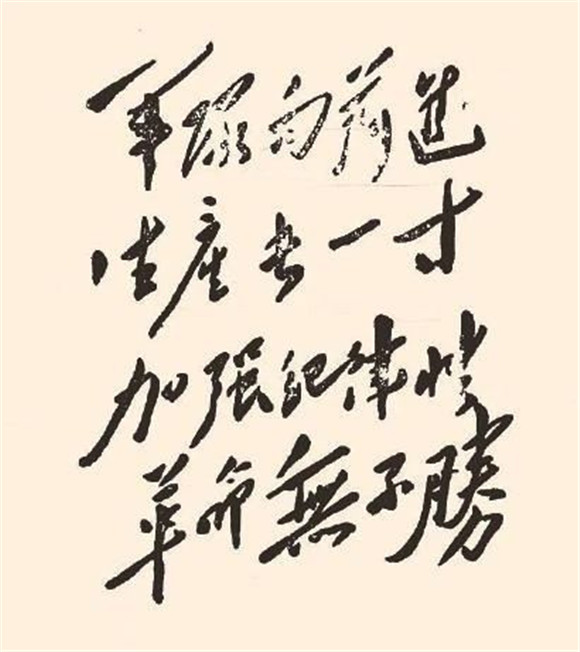 军队向前进
生产长一寸
加强纪律性
革命無不勝